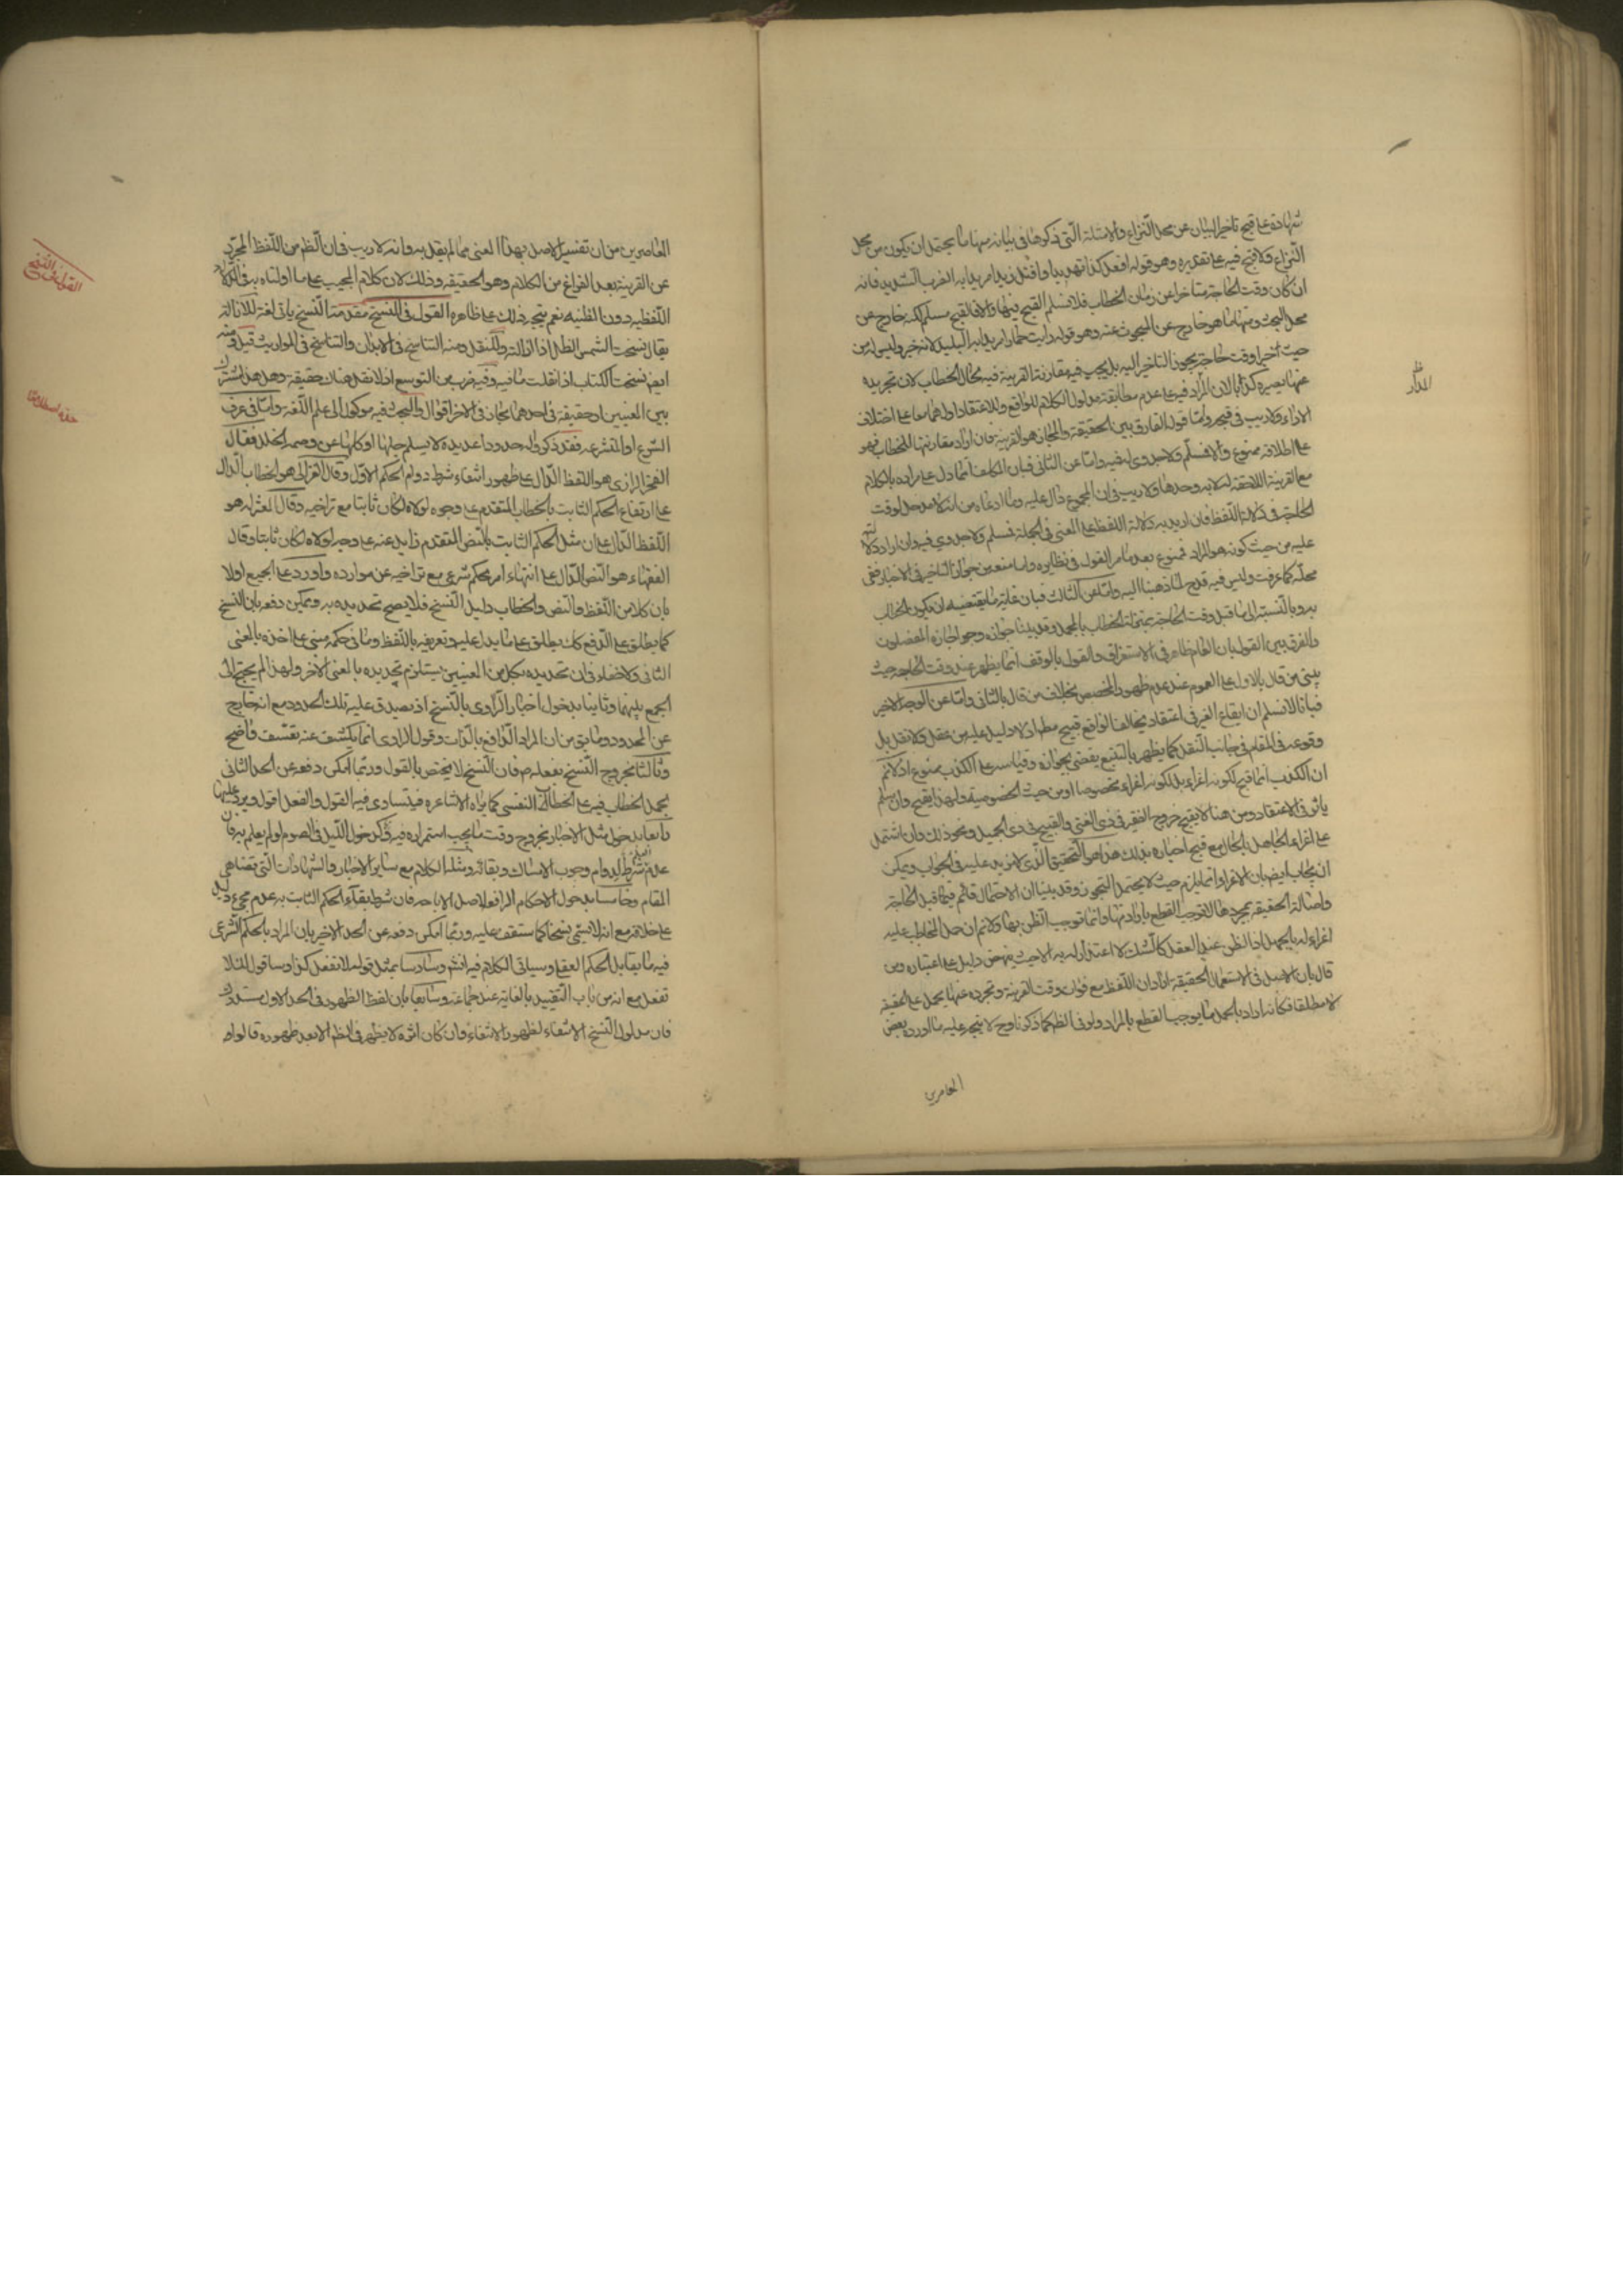 شهادة على قبح تاخير البيان عن محل النزاع والامثلة التى ذكرها فى بيانه منها ما يحتمل ان يكون من محل
النزاع ولا قبح فيه على تقديره وهو قوله افعل كذا تهديدا واقتل زيدا مريدا به الضرب الشديد فانه
ان كان وقت الحاجة متاخرا عن زمان الخطاب فلا نسلم القبح فيها والا فالقبح مسلم لكنه خارج عن
محل البحث ومنها ما هو خارج عن المبحوث عنه وهو قوله رايت حمارا مريدا به البليد لانه خبر وليس له من
حيث اخبرا وقت حاجة يجوز التاخير اليه بل يجب فيه مقارنة القرينة فيه محال الخطاب لان تجريده
عنها يصيره كذبا لان المراد فيه عدم مطابقة مدلول الكلام للواقع وللاعتقاد او لهما معا على اختلاف
الاراء ولا ريب فى قبحه واما قول الفارق بين الحقيقة والمجاز هو القرينة فان اراد مقارنتها للخطاب فهو
على اطلاقه ممنوع والا فمسلم ولا جدوى له فيه واما عن الثانى فبان المكلف انما دل على مراده بالكلام
مع القرينة اللاحقة له لا به وحدها ولا ريب فى ان المجموع دال عليه وما ادعاه من انه لا مدخل لوقت
الحاجة فى دلالة اللفظ فان اريد به دلالة اللفظ على المعنى فى الجملة فمسلم ولا جدوى فيه وان اراد دلالته
عليه من حيث كونه هو المراد فممنوع بعد ما مر القول فى نظايره واما منعه من جواز التاخير فى الاخبار ففى
محله كما عرفت وليس فيه قدح لما ذهبنا اليه واما عن الثالث فبان غاية ما يقتضيه ان يكون الخطاب
به وبالنسبة الى ما قبل وقت الحاجة بمنزلة الخطاب بالمجمل وقد بينا جوازه وجوازه اجازه المفصلون
والفرق بين القول بان العام ظاهر فى الاستغراق والقول بالوقف انما يظهر عند وقت الحاجة حيث
يبنى من قال بالاول على العموم عند عدم ظهور المخصص بخلاف من قال بالثانى واما عن الوجه الاخير
فبانا لا نسلم ان ايقاع الغير فى اعتقاد يخالف الواقع قبيح مطم اذ لا دليل عليه من عقل ولا نقل بل
وقوعه فى المقام فى جانب النقل كما يظهر بالتتبع يقضى بجوازه وقياسه على الكذب ممنوع اذ لا نم
ان الكذب انما قبح لكونه اغراء بل لكونه اغراء مخصوصا او من حيث الخصوصية ولهذا يقبح وان لم
ياثر فى الاعتقاد ومن هنا لا يقبح خروج الفقير فى زى الغنى والقبيح فى زى الجميل ونحو ذلك وان اشتمل
على اغراء الجاهل بالحال مع قبح اخباره بذلك هذا هو التحقيق الذى لا مزيد عليه فى الجواب ويمكن
ان يجاب ايضا بان الاغراء انما يلزم حيث لا يحتمل التجوز وقد بينا ان الاحتمال قائم فيما قبل الحاجة
واصالة الحقيقة بمجردها لا توجب القطع بارادتها وانما توجب الظن بها ولا نم ان حمل المخاطب عليه
اغراء له بالجهل اذ الظن عند العقل كالشك لا اعتداد له به الا حيث ينهض دليل على اعتباره ومن
قال بان الاصل فى الاستعمال الحقيقة اراد ان اللفظ مع فوات وقت القرينة وتجرده عنها يحمل على الحقيقة
لا مطلقا فكانه اراد بالحمل ما يوجب القطع بالمراد ولو فى الظم كما ذكرنا وح لا يتجه عليه ما اورده بعض
المعاصرين
المعاصرين من ان تفسير الاصل بهذا المعنى مما لم يقل به وانه لا ريب فى ان الظم من اللفظ المجرد
عن القرينة بعد الفراغ من الكلام وهو الحقيقة وذلك لان كلام المجيب على ما اولناه يبقى الدلالة
اللفظيه دون الظنيه نعم يتجه ذلك على ظاهره القول فى النسخ مقدمة النسخ ياتى لغة للازالة
يقال نسخت الشمس الظل اذا ازالته وللنقل ومنه التناسخ فى الابدان والتناسخ فى المواريث قيل ومنه
ايض نسخت الكتاب اذا نقلت ما فيه وفيه ضرب من التوسع اذ لا نقل هناك حقيقة وهل هو مشترك
بين المعنيين او حقيقة فى احدهما مجاز فى الاخر اقوال والبحث فيه موكول الى علم اللغة واما فى عرف
الشرع او المتشرعه فقد ذكروا له حدودا عديده لا يسلم جلها او كلها عن وصمه الخلل فقال
الفخر الرازى هو اللفظ الدال على ظهور انتفاء شرط دوام الحكم الاول وقال الغزالى هو الخطاب الدال
على ارتفاع الحكم الثابت بالخطاب المتقدم على وجه لولاه لكان ثابتا مع تراخيه وقال المعتزله هو
اللفظ الدال على ان مثل الحكم الثابت بالنص المتقدم زايل عنه على وجه لولاه لكان ثابتا وقال
الفقهاء هو النص الدال على انتهاء امر بحكم شرعى مع تراخيه عن موارده واورد على الجميع اولا
بان كلا من اللفظ والنص والخطاب دليل النسخ فلا يصح تحديده به ويمكن دفعه بان النسخ
كما يطلق على الرفع كك يطلق على ما يدل عليه وتعريفه باللفظ وما فى حكمه مبنى على اخذه بالمعنى
الثانى ولا خفاء فى ان تحديده بكل من المعنيين يستلزم تحديده بالمعنى الاخر ولهذا لم يحتج الى
الجمع بينهما وثانيا بدخول اخبار الراوى بالنسخ اذ يصدق عليه تلك الحدود مع انه خارج
عن المحدود وما يق من ان المراد الدافع بالذات وقول الراوى انما يكشف عنه تعسف واضح
وثالثا بخروج النسخ بفعله ص فان النسخ لا يختص بالقول وربما امكن دفعه عن الحد الثانى
بحمل الخطاب فيه على الخطاب النفسى كما يراه الاشاعره فيتساوى فيه القول والفعل اقول ويرد عليها
رابعا بدخول مثل الاخبار بخروج وقت ما يجب استمراره فيه كدخول الليل فى الصوم او لم يعلم به فان
عدمه شرط لدوام وجوب الامساك وبقائه ومثله الكلام مع ساير الاخبار والشهادات التى تضاهى
المقام وخامسا بدخول الاحكام الرافعه لاصل الاباحه فان شرط بقاء الحكم الثابت به عدم مجىء دليل
على خلافه مع انه لا يسمى نسخا كما ستقف عليه وربما امكن دفعه عن الحد الاخير بان المراد بالحكم الشرعى
فيه ما يقابل الحكم العقلى وسياتى الكلام فيه انش وسادسا بمثل قوله لا تفعل كذا وساقول لك لا
تفعل مع انه من باب التقييد بالغاية عند جماعة وسابعا بان لفظ الظهور فى الحد الاول مستدرك
فان مدلول النسخ الانتفاء لظهور الانتفاء وان كان اثره لا يظهر فى الظم الا بعد ظهوره قالوا و
القول فى النسخ